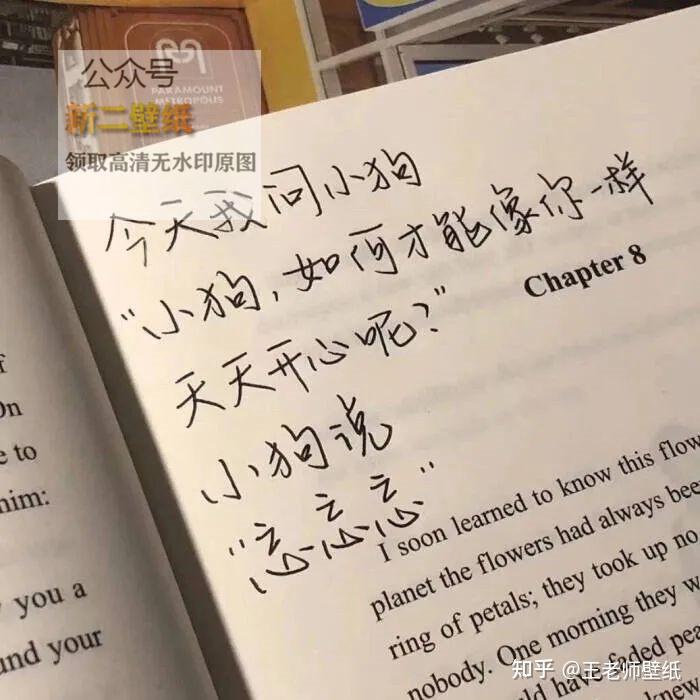 公众号
新二壁纸
领取高清无水印原图
PARAMOUNT
METROPOLUS
今天我问小狗
“小狗，如何才能像你一样
天天开心呢？”
小狗说
“忘忘忘”
Chapter 8
I soon learned to know this flow
planet the flowers had always bee
ring of petals; they took up no
nobody. One morning they w
ld have faded pea
f
On
e to
him:
you a
und your
知乎 @王老师壁纸